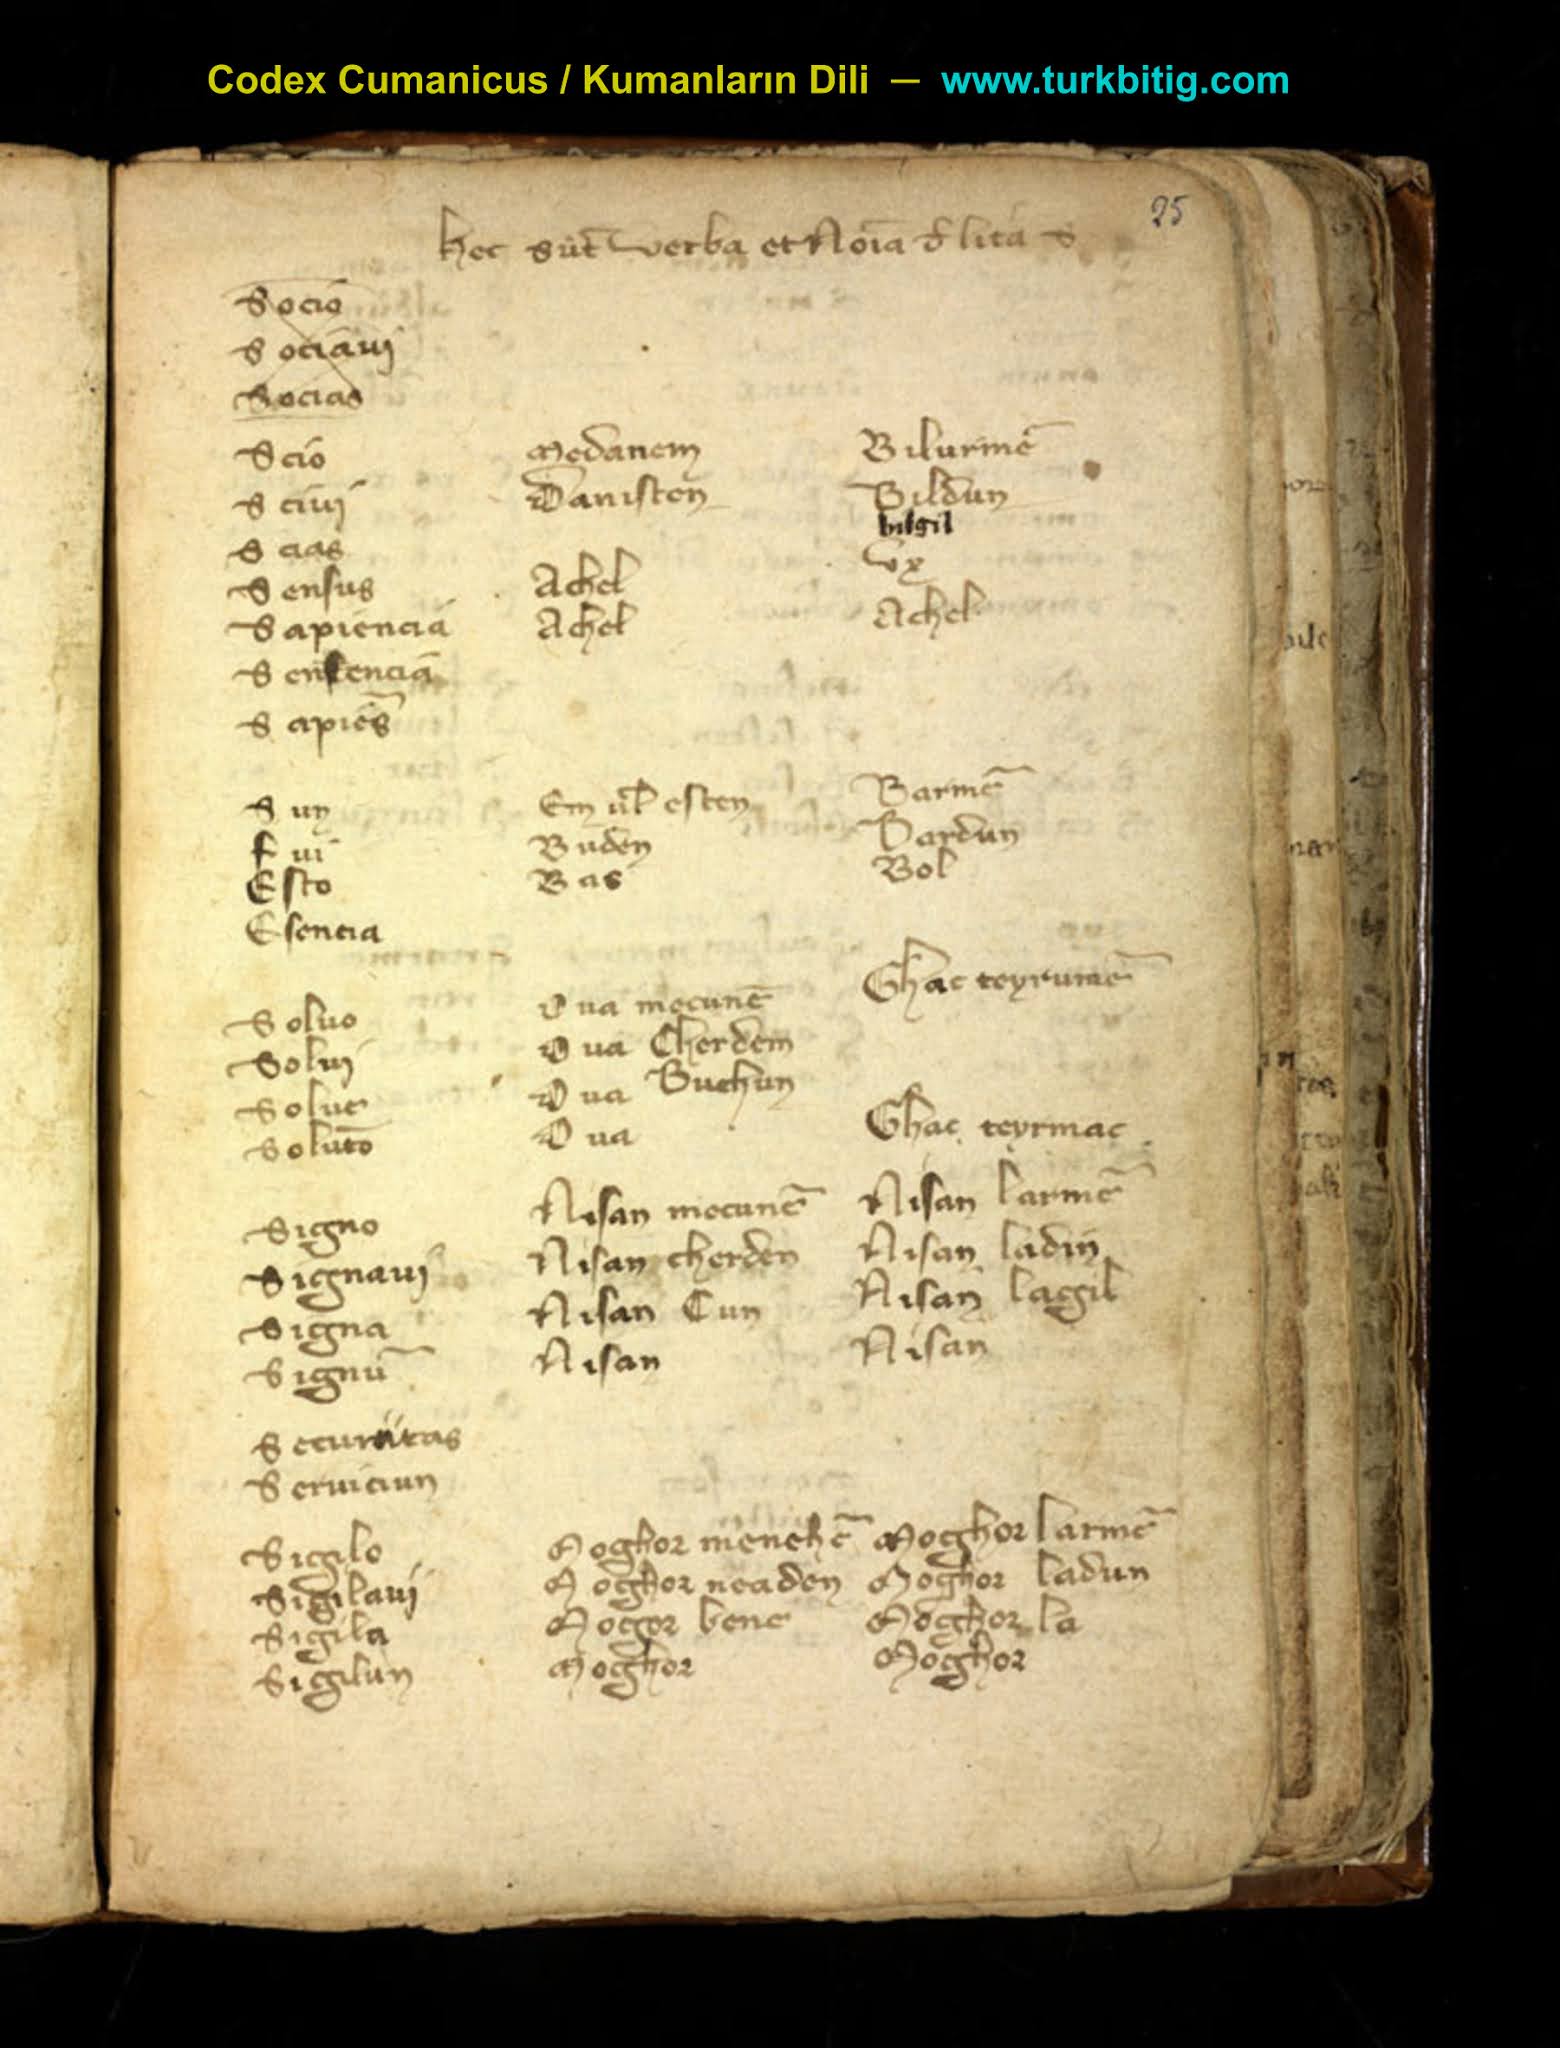 Codex Cumanicus / Kumanların Dili — www.turkbitig.com
25
hec sūt verba et Noīa d' lit̄a S
Socio
Sociaui
Socias
Scio Medanem Bilurmē
Sciui Danisten Bildun
bilgil
Scias Vx
Sensus Achel
Sapiencia Achel Achel
Sentencia
Sapiēs
Sun Em ul' esten Barmē
Fui Buden Bardun
Esto Bas Bol
Esencia
Soluo Dua mecunē Ghac teyrurmē
Solui Dua Cherdem
Solue Dua Buchun
Solutō Dua Ghac teyrmac
Signo Nisan mecunē Nisan larmē
Signaui Nisan cherden Nisan ladin
Signa Nisan Cun Nisan lagil
Signū Nisan Nisan
Securitas
Seruiciun
Sigilo Moghor menehē Moghor larmē
Sigilaui Moghor neaden Moghor ladun
Sigila Mogor bene Moghor la
Sigilun Moghor Moghor